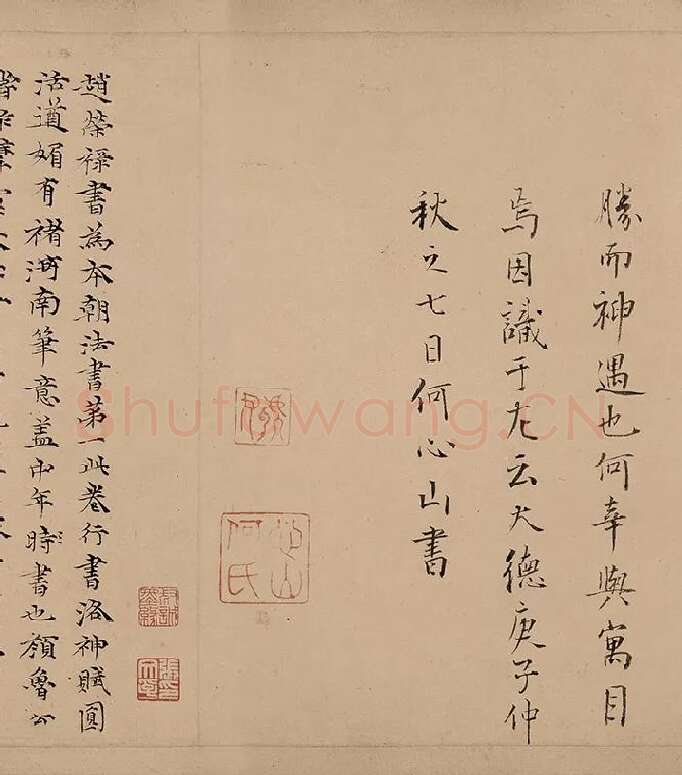 勝而神遇也何幸與寓目
焉因識于左云大德庚子仲
秋之七日何心山書
心山何氏
趙榮祿書為本朝法書第一此卷行書洛神賦圓
活遒媚有褚河南筆意蓋中年時書也顏魯公
Shufawang.CN